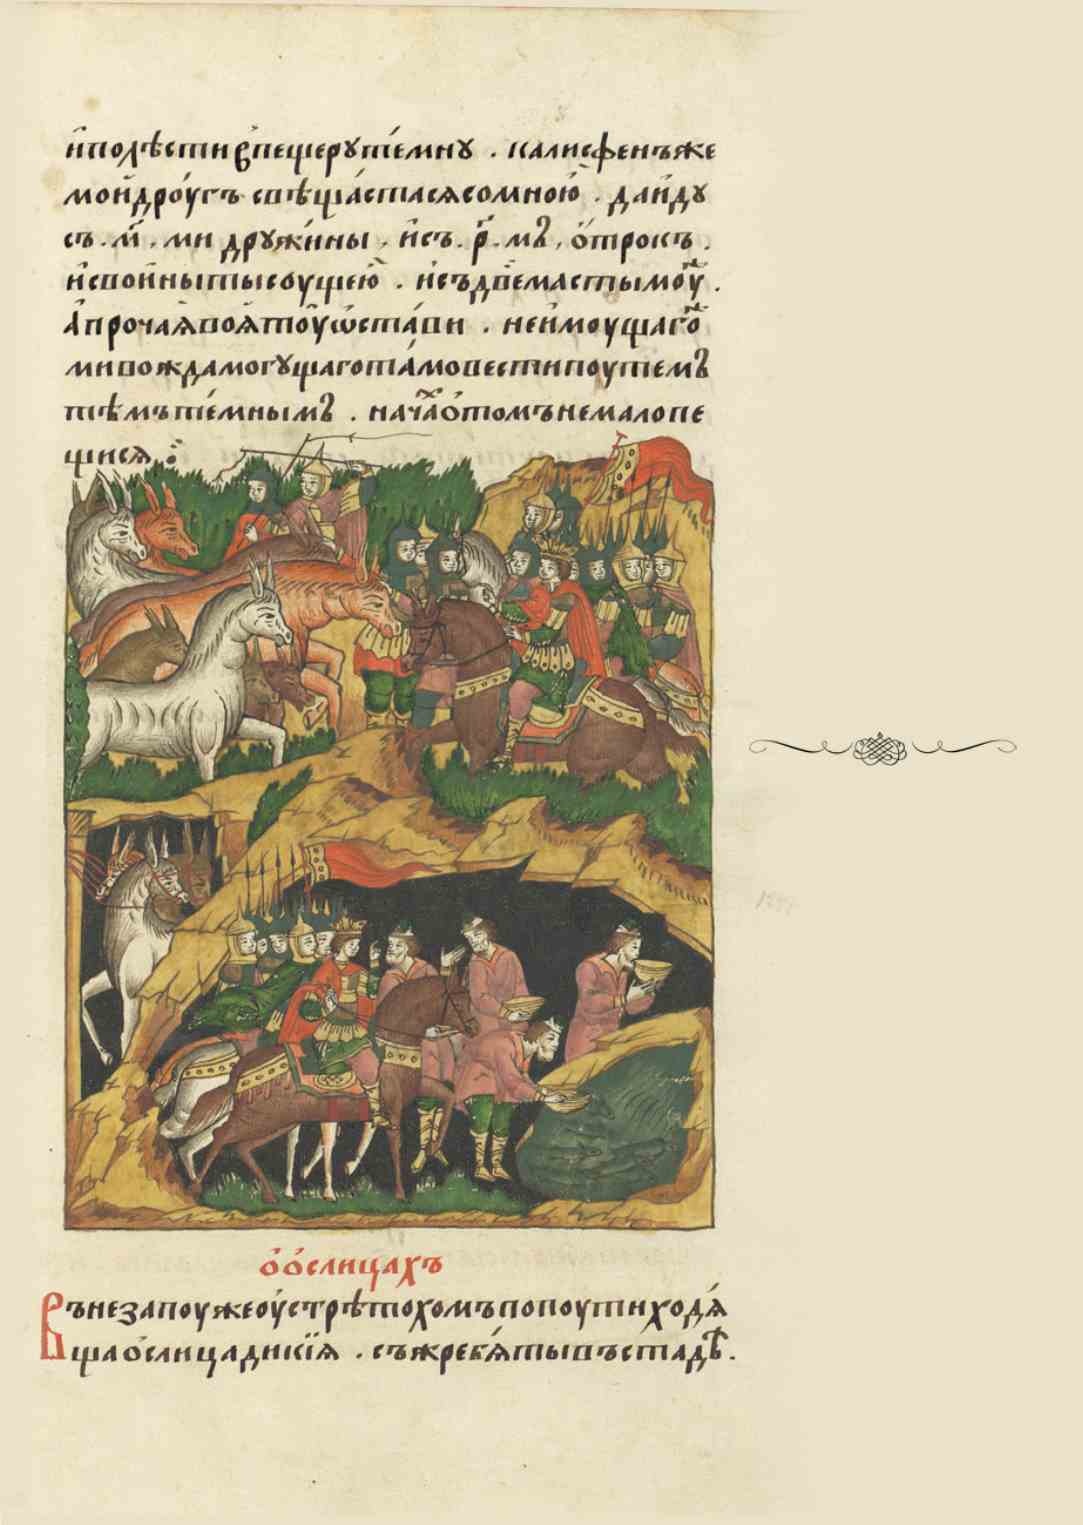 и҆полѣсти в̾пещерꙋте́мнꙋ . калисфенъже
мо́и дро́угъ свѣща́стасѧсомною̀ . даи҆дꙋ
съ . м҃ . ми дрꙋжи́ны . и҆съ . р҃ . мъ , ѻ҆трокъ .
и҆своины тысоущею̀ . и҆съдве́мастымоу́ .
а҆прочаѧ̀воѧ̀тоу̀ѡ҆ста́ви . неи҆моущаго
мивождамогꙋщаготамовестипоутемъ
тѣмъте́мнымъ . нача́ѻ҆томънемалопе
щисѧ ⁘
ѻ҆ѻ҆слицахъ
Въне́запоужеоу҆стрѣтохомъпопоутиходѧ́
щаѻ҆слицадикїѧ . съжребѧ́тывъстадѣ .